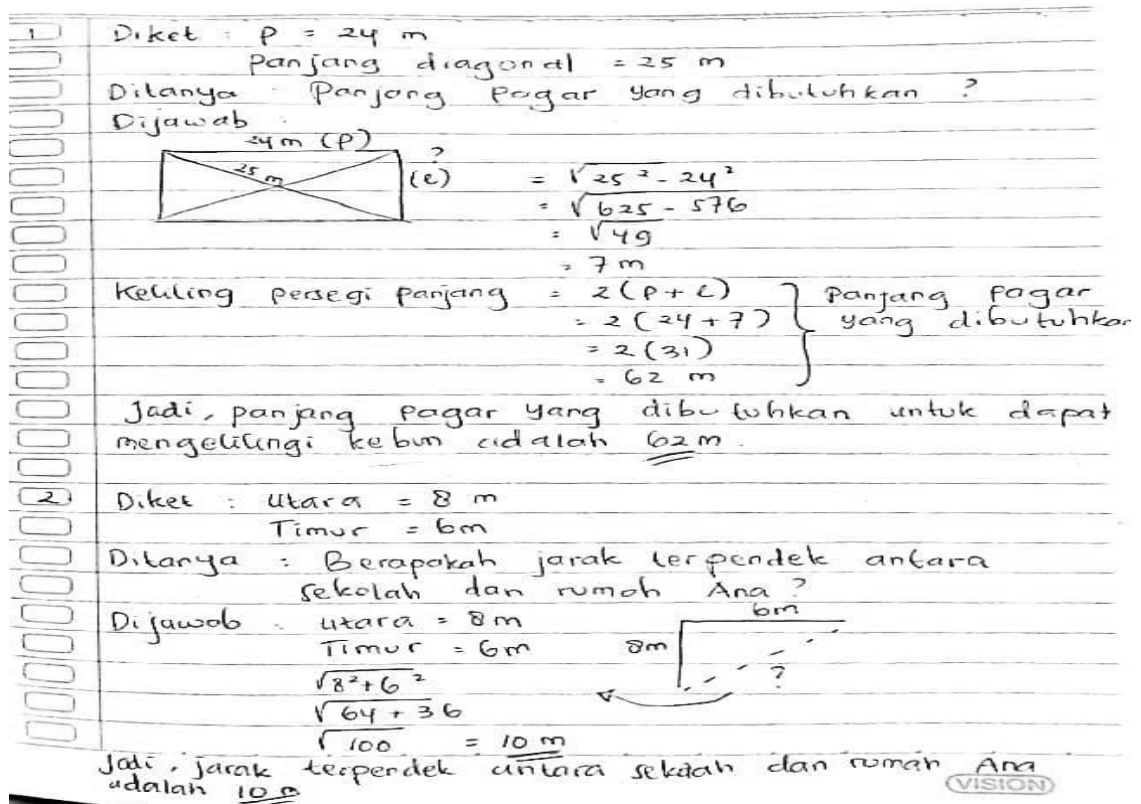 1 Diket : P = 24 m
Panjang diagonal = 25 m
Ditanya : Panjang Pagar yang dibutuhkan ?
Dijawab :
24 m (P)
?
25 m
(l)
= √25² - 24²
= √625 - 576
= √49
= 7 m
Keliling persegi panjang = 2 (P + l)
= 2 (24 + 7)
= 2 (31)
= 62 m
Panjang Pagar
yang dibutuhkan
Jadi, panjang pagar yang dibutuhkan untuk dapat
mengelilingi kebun adalah 62 m.
2 Diket : Utara = 8 m
Timur = 6m
Ditanya : Berapakah jarak terpendek antara
sekolah dan rumah Ana ?
Dijawab : Utara = 8m
Timur = 6m
6m
8m
?
√8² + 6²
√64 + 36
√100 = 10 m
Jadi, jarak terpendek antara sekolah dan rumah Ana
adalah 10 m
VISION